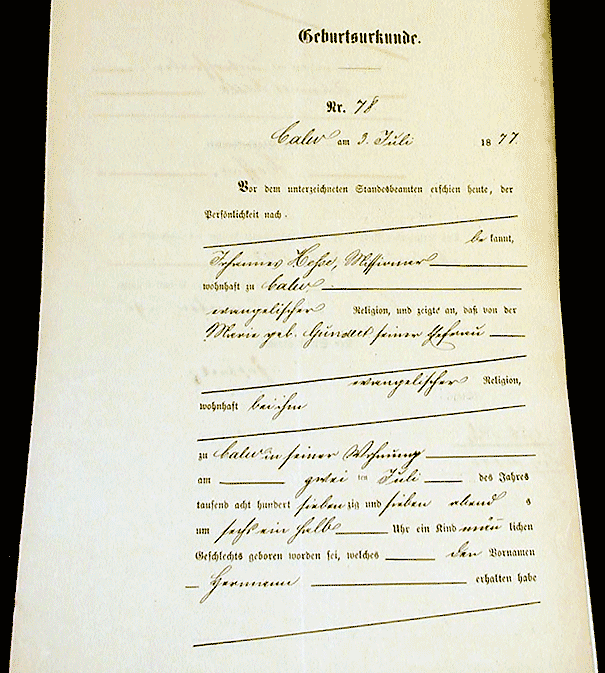 Geburtsurkunde.
Nr. 78
Calw am 3. Juli 1877.
Vor dem unterzeichneten Standesbeamten erschien heute, der
Persönlichkeit nach
bekannt,
Johannes Hesse, Missionar
wohnhaft zu Calw
evangelischer Religion, und zeigte an, daß von der
Marie geb. Gundert seiner Ehefrau
evangelischer Religion,
wohnhaft bei ihm
zu Calw in seiner Wohnung
am zwei ten Juli des Jahres
tausend acht hundert siebenzig und sieben abends
um sechs ein halb Uhr ein Kind männlichen
Geschlechts geboren worden sei, welches den Vornamen
Hermann erhalten habe